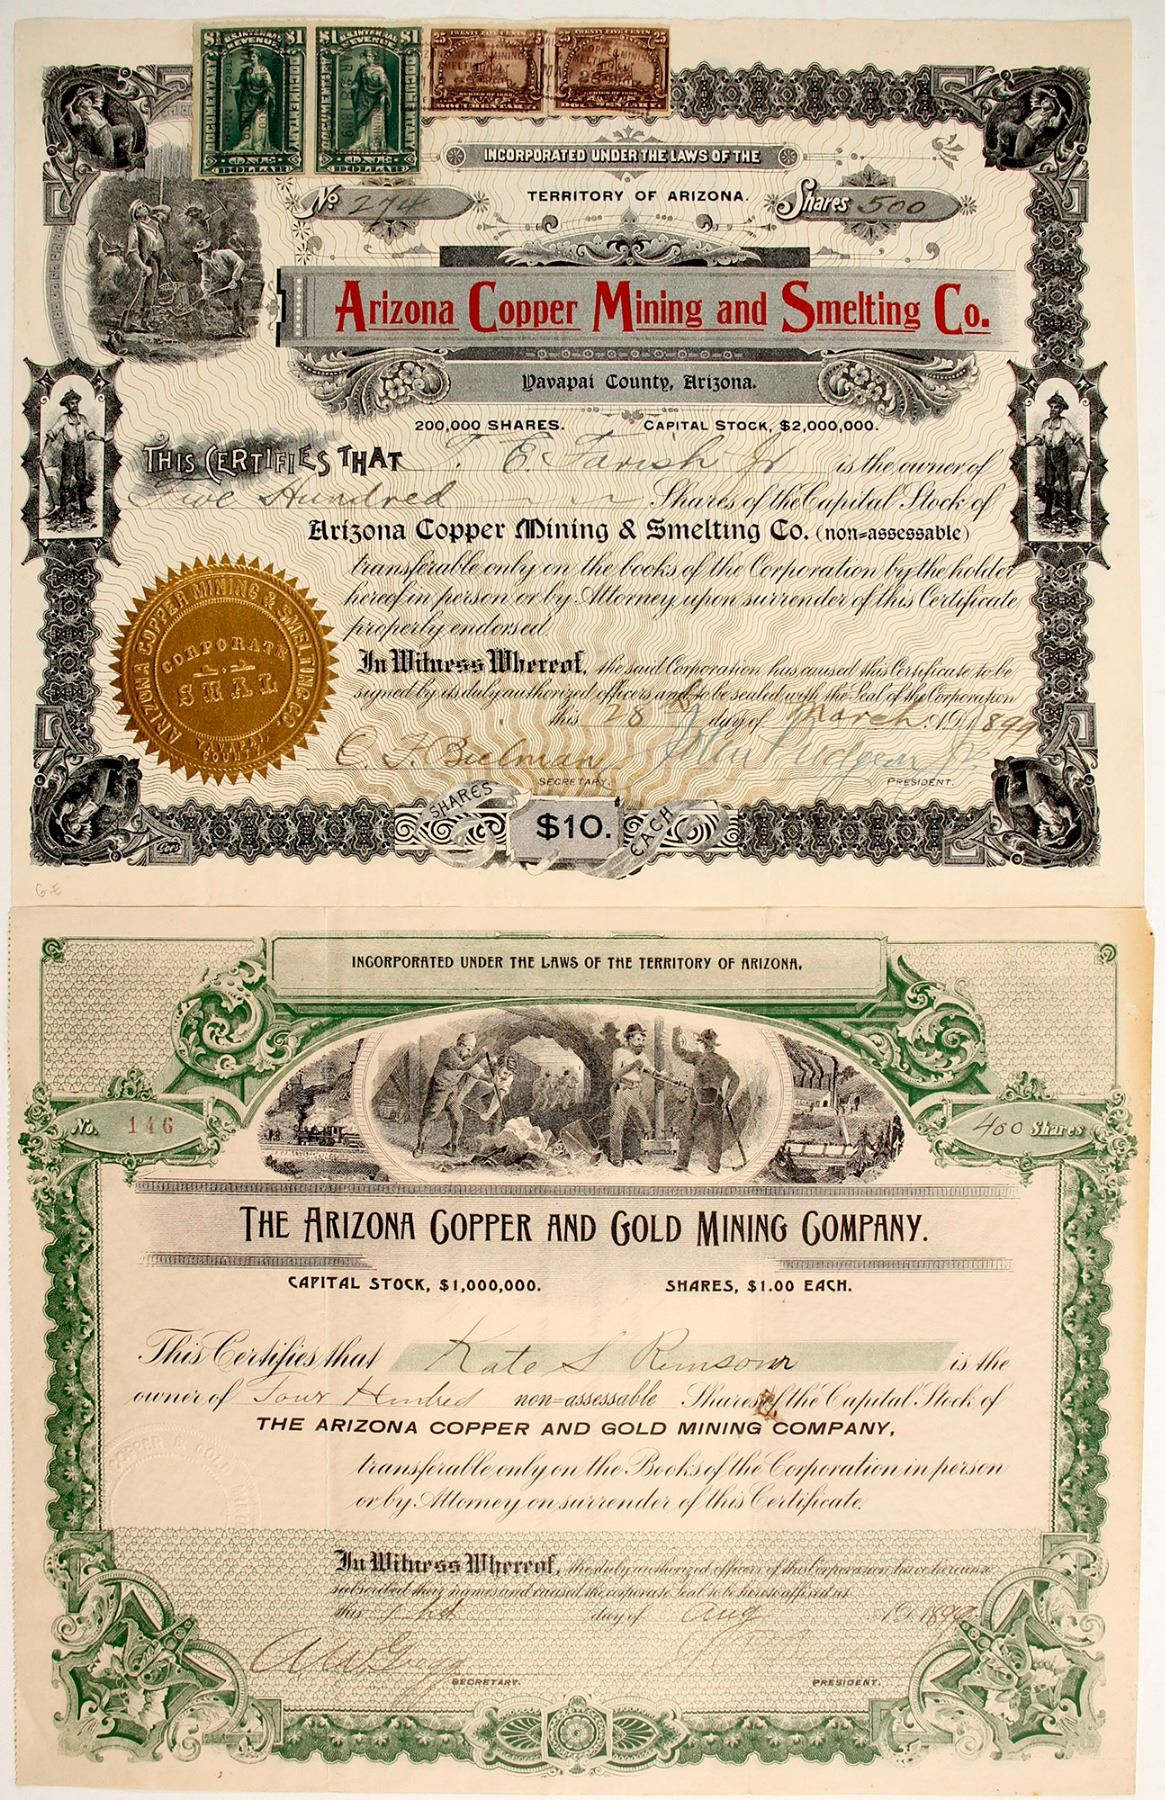 $1 U.S. INTERNAL REVENUE $1
DOCUMENTARY
ONE
DOLLAR
$1 U.S. INTERNAL REVENUE $1
DOCUMENTARY
ONE
DOLLAR
25 TWENTY FIVE CENTS 25
25 TWENTY FIVE CENTS 25
INCORPORATED UNDER THE LAWS OF THE
TERRITORY OF ARIZONA.
No 274
Shares 500
Arizona Copper Mining and Smelting Co.
Yavapai County, Arizona.
200,000 SHARES. CAPITAL STOCK, $2,000,000.
THIS CERTIFIES THAT T. E. Farish Jr is the owner of
Five Hundred Shares of the Capital Stock of
Arizona Copper Mining & Smelting Co. (non=assessable)
transferable only on the books of the Corporation by the holder
hereof in person or by Attorney upon surrender of this Certificate
properly endorsed.
In Witness Whereof, the said Corporation has caused this Certificate to be
signed by its duly authorized officers and to be sealed with the Seal of the Corporation
this 28 day of March A.D. 1899
ARIZONA COPPER MINING & SMELTING CO.
CORPORATE
SEAL
YAVAPAI
COUNTY
C. F. Bielman
SECRETARY.
PRESIDENT.
SHARES $10. EACH
G.E
INCORPORATED UNDER THE LAWS OF THE TERRITORY OF ARIZONA.
No. 146
400 Shares
THE ARIZONA COPPER AND GOLD MINING COMPANY.
CAPITAL STOCK, $1,000,000. SHARES, $1.00 EACH.
This Certifies that Kate S is the
owner of Four Hundred non=assessable Shares of the Capital Stock of
THE ARIZONA COPPER AND GOLD MINING COMPANY,
transferable only on the Books of the Corporation in person
or by Attorney on surrender of this Certificate.
COPPER & GOLD
In Witness Whereof, the duly authorized officers of this Corporation have hereunto
subscribed their names and caused the corporate Seal to be hereto affixed at
this 1st day of Aug A.D. 1899
A W Gragg
SECRETARY.
PRESIDENT.